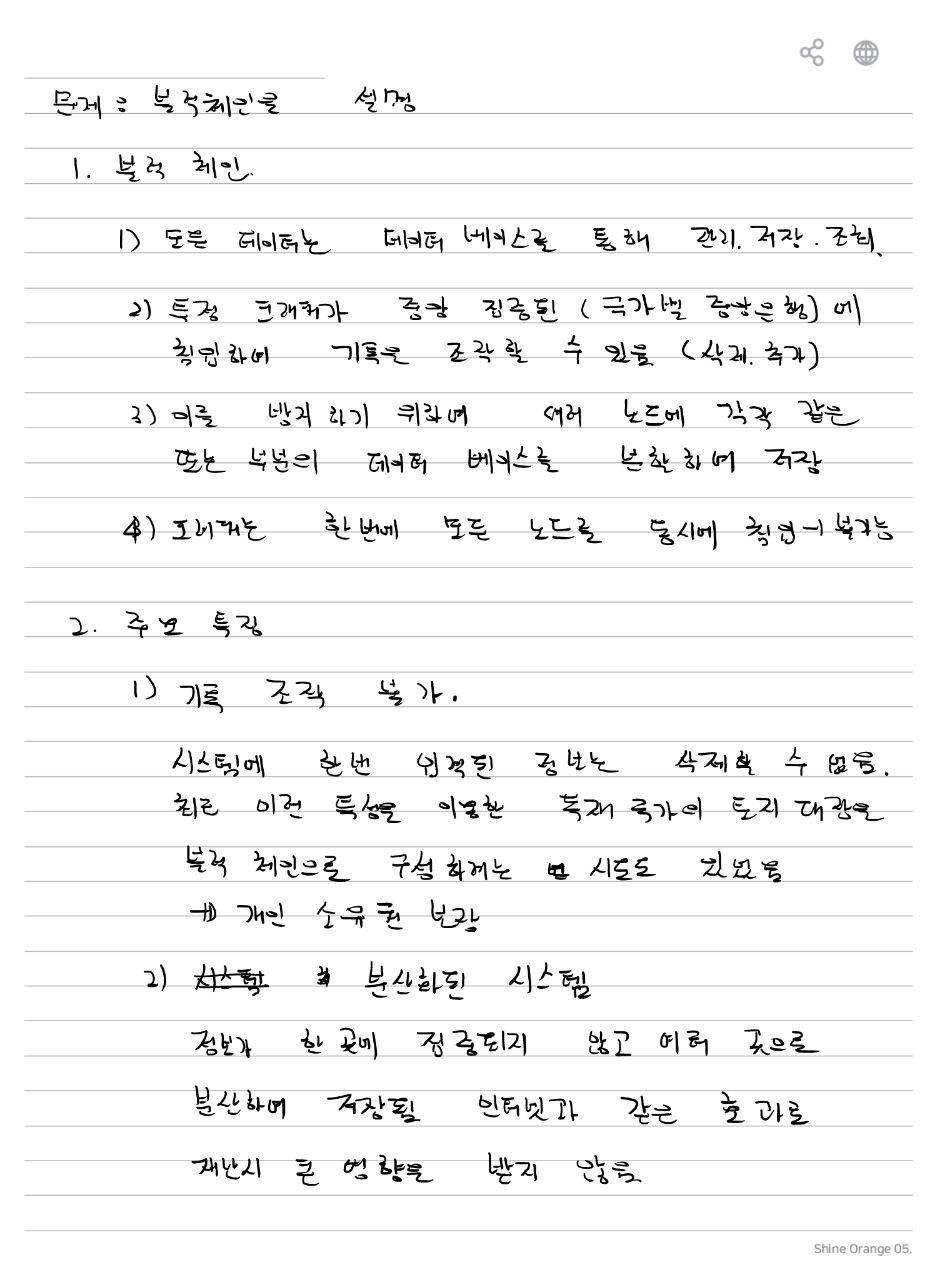 문제 : 블럭체인을 설명
1. 블럭 체인.
1) 모든 데이터는 데이터 베이스를 통해 관리. 저장. 조회.
2) 특정 크래커가 중앙 집중된 (국가별 중앙은행)에
침입하여 기록을 조작할 수 있음 (삭제. 추가)
3) 이를 방지하기 위하여 여러 노드에 각각 같은
또는 부분의 데이터 베이스를 분할하여 저장
4) 크래커는 한번에 모든 노드를 동시에 침입 → 불가능
2. 주요 특징
1) 기록 조작 불가.
시스템에 한번 입력된 정보는 삭제할 수 없음.
최근 이런 특성을 이용한 독재 국가의 토지 대장을
블럭 체인으로 구성하려는 시도도 있었음
→ 개인 소유권 보장
2) 분산화된 시스템
정보가 한 곳에 집중되지 않고 여러 곳으로
분산하여 저장됨 인터넷과 같은 효과로
재난시 큰 영향을 받지 않음
Shine Orange 05.